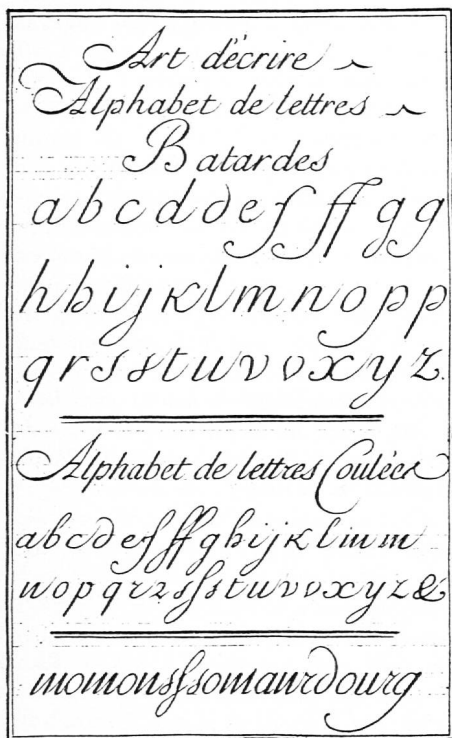 Art d'écrire
Alphabet de lettres
Batardes
a b c d d e f ff g g
h h i j k l m n o p p
q r s s t u v v x y z.
Alphabet de lettres Coulées
a b c d e f ff g h i j k l m m
n o p q r 2 s fs t u v v x y z &